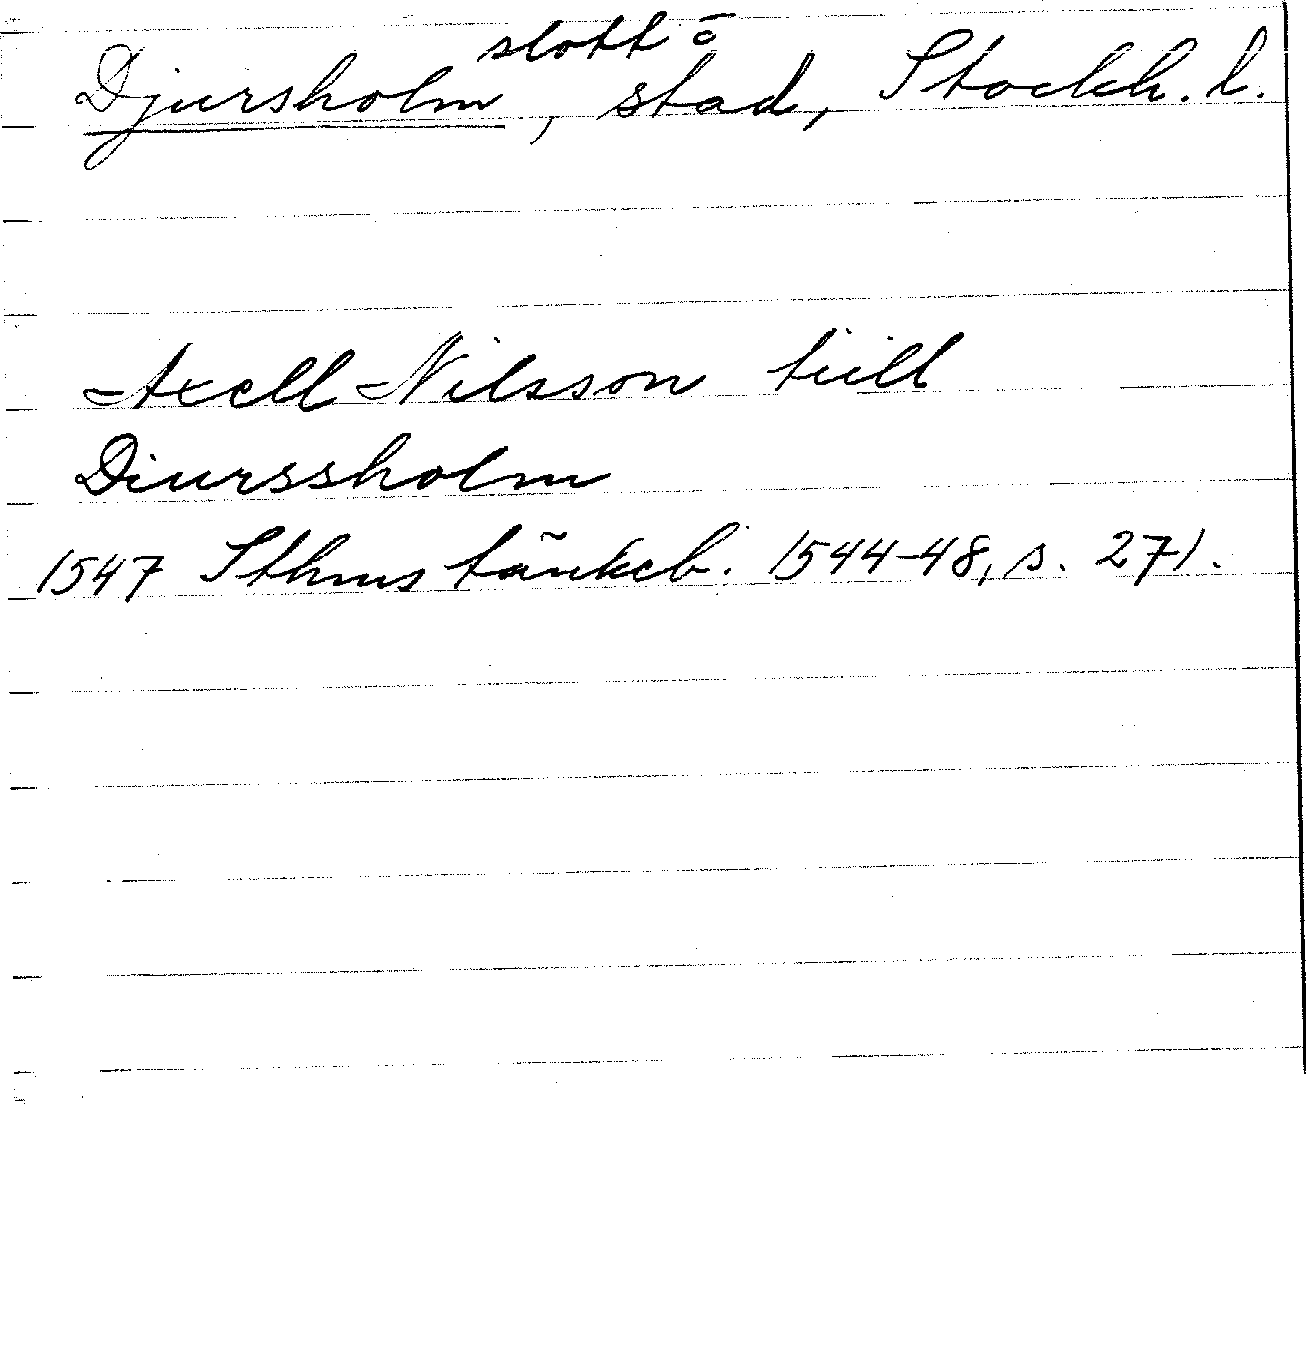 slott o
Djursholm, stad, Stockh. l.
Axell Nilsson tiill
Diurssholm
1547 Sthms tänkeb. 1544-48, s. 271.